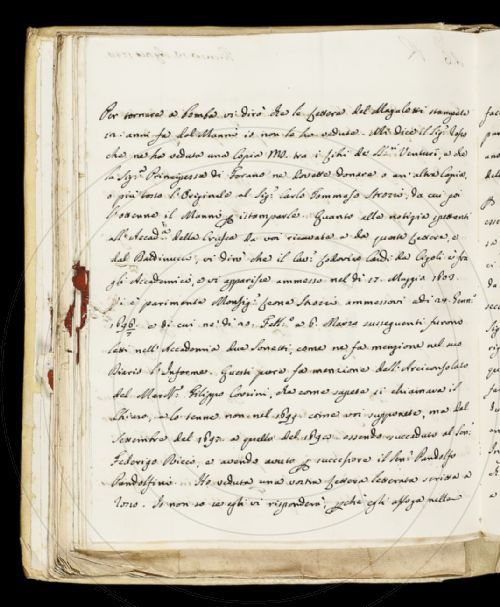 Per tornare a bomba vi dirò che le Lettere del Magalotti stampate
in anni fa dal Manni io non le ho vedute. Mi dice il Sig.r
che ne ha veduta una Copia MS. tra i libri de Venturi, e che
la Sig.ra Principessa di Forano ne dovette donare o un'altra Copia,
o più tosto l'Originale al Sig.r Carlo Tommaso Strozzi, da cui poi
l'ottenne il Manni p istamparle. Quanto alle notizie spettanti
all'Accad.a della Crusca da voi ricavate e da queste Lettere, e
dal Baldinucci, vi dirò che il Cav.r Lodovico Cardi da Cigoli è fra
gli Accademici, e vi apparisce ammesso nel dì 17. Maggio 1607.
Vi è parimente Monsig.r Leone Strozzi ammessovi a dì 24. Genn.
1696. e di cui ne' dì 20. Febb.o e 6. Marzo susseguenti furono
letti nell'Accademia due Sonetti, come ne fa menzione nel suo
Diario l'Informe. Questi pure fa menzione dell'Arciconsolato
del March. Filippo Corsini, che come sapete si chiamava il
Chiuso, e lo tenne non nel come voi supponete, ma dal
Settembre del a quello del essendo succeduto al Sen.
Federigo Ricci, e avendo avuto p successore il Sen. Pandolfo
Pandolfini. Ho veduta una vostra Lettera scritta a
Io non so se egli vi risponderà, pchè egli affoga nelle